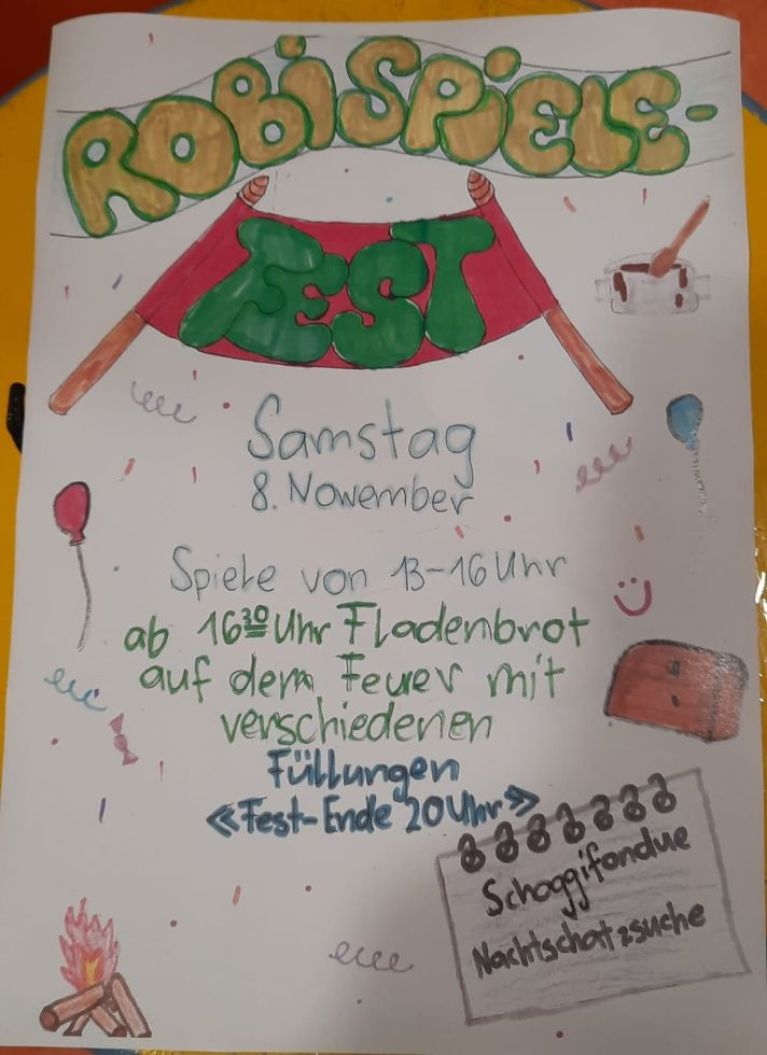 ROBiSPiELE-
FEST
Samstag
8. Nowember
Spiele von 13-16 Uhr
ab 16³⁰ Uhr Fladenbrot
auf dem Feuer mit
verschiedenen
Füllungen
«Fest-Ende 20 Uhr»
Schoggifondue
Nachtschatzsuche